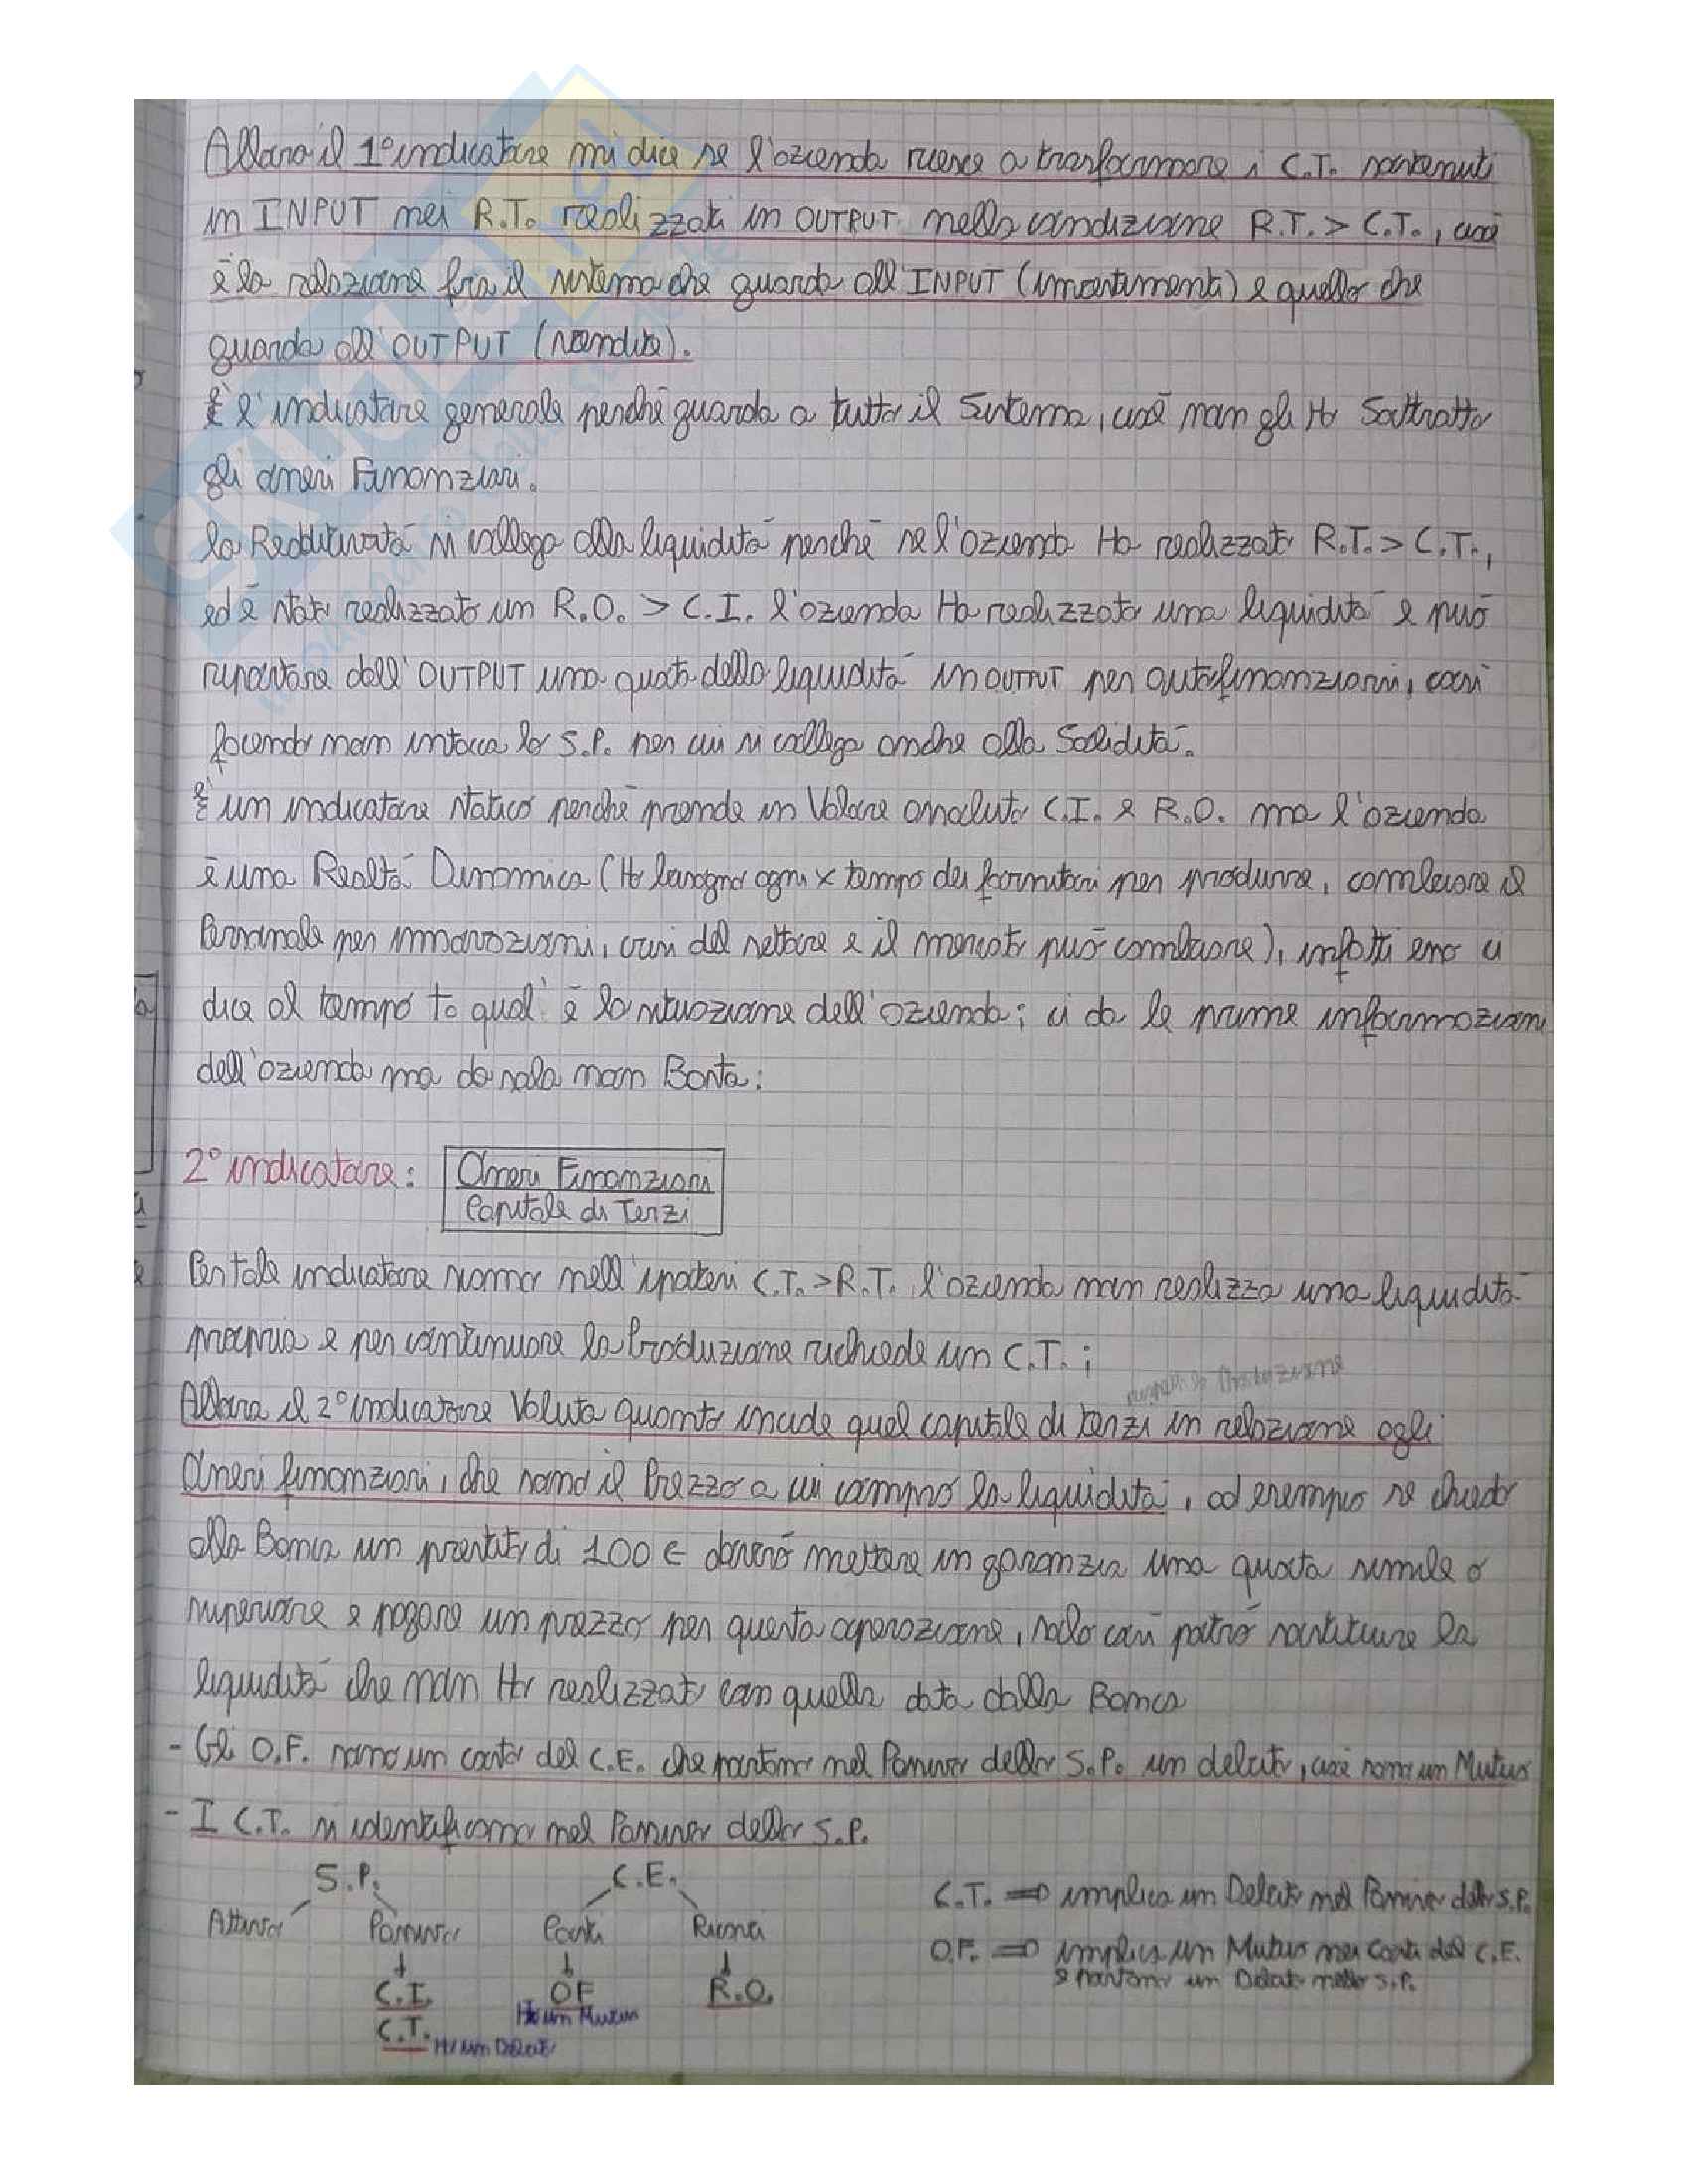 Allora il 1° indicatore mi dice se l'azienda riesce a trasformare i C.T. sostenuti
in INPUT nei R.T. realizzati in OUTPUT nella condizione R.T. > C.T., cioè
è la relazione fra il sistema che guarda all'INPUT (investimenti) e quello che
guarda all'OUTPUT (vendite).
È l'indicatore generale perché guarda a tutto il Sistema, cioè non gli Ho Sottratto
gli oneri Finanziari.
la Redditività si collega alla liquidità perché se l'azienda Ha realizzato R.T. > C.T.,
ed è stato realizzato un R.O. > C.I. l'azienda Ha realizzato una liquidità e può
riportare dall'OUTPUT una quota della liquidità in OUTPUT per autofinanziarsi, così
facendo non intacca lo S.P. per cui si collega anche alla Solidità.
È un indicatore statico perché prende in Valore assoluto C.I. e R.O. ma l'azienda
è una Realtà Dinamica (Ho bisogno ogni x tempo dei fornitori per produrre, cambiare il
Personale per innovazioni, crisi del settore e il mercato può cambiare), infatti esso ci
dice al tempo t0 qual'è la situazione dell'azienda; ci da le prime informazioni
dell'azienda ma da sola non Basta:
2° indicatore: Oneri Finanziari
Capitale di Terzi
Per tale indicatore siamo nell'ipotesi C.T. > R.T., l'azienda non realizza una liquidità
propria e per continuare la Produzione richiede un C.T.;
Allora il 2° indicatore Valuta quanto incide quel capitale di terzi in relazione agli
Oneri finanziari, che sono il Prezzo a cui compro la liquidità, ad esempio se chiedo
alla Banca un prestito di 100 € dovrò mettere in garanzia una quota simile o
superiore e pagare un prezzo per questa operazione, solo così potrò sostituire la
liquidità che non Ho realizzato con quella data dalla Banca
- Gli O.F. sono un costo del C.E. che portano nel Passivo dello S.P. un debito, cioè sono un Mutuo
- I C.T. si identificano nel Passivo dello S.P.
S.P. C.E.
Attivo Passivo Costi Ricavi
C.I. OF R.O.
Ho un Mutuo
C.T. Ho un Debito
C.T. ⇒ implica un Debito nel Passivo dello S.P.
O.F. ⇒ implica un Mutuo nei Costi del C.E.
e portano un Debito nello S.P.